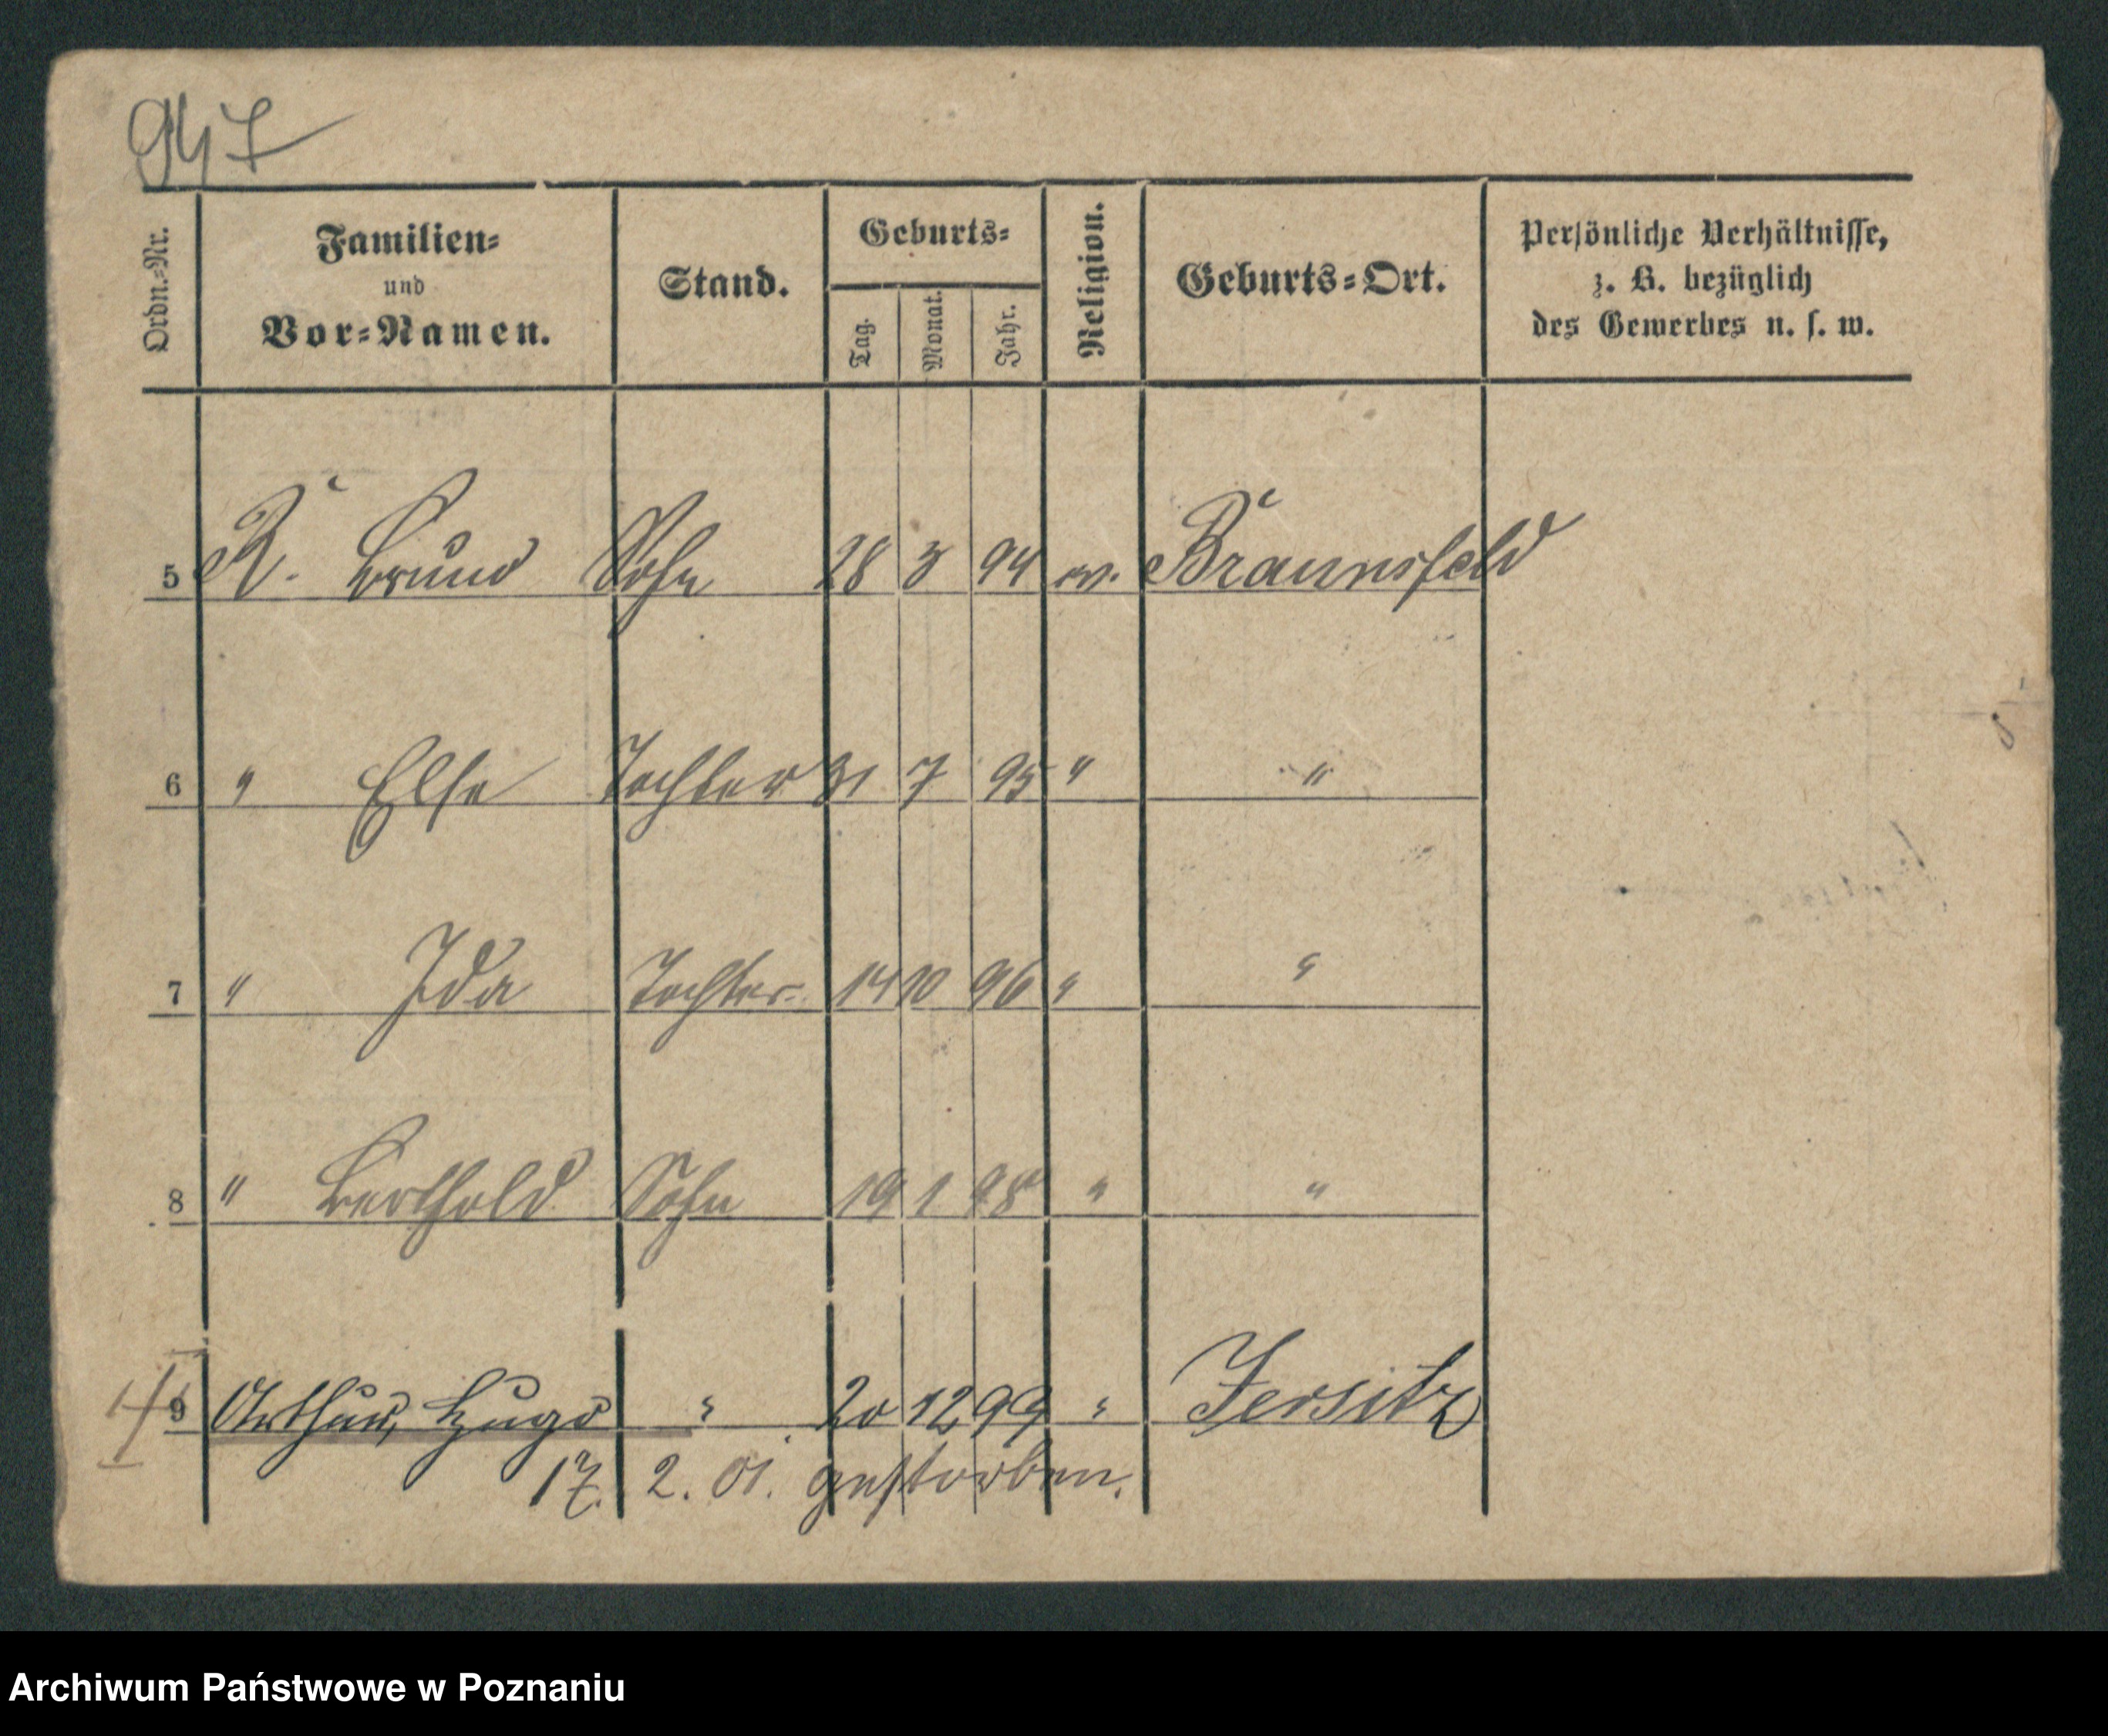 947
Ordn.-Nr. Familien- und Vor-Namen. Stand. Geburts- Tag. Monat. Jahr. Religion. Geburts-Ort. Persönliche Verhältnisse, z. B. bezüglich des Gewerbes u. s. w.
5 R. Bruno Sohn 28 3 94 ev. Braunsfeld
6 " Else Tochter 31 7 95 " "
7 " Ida Tochter 14 10 96 " "
8 " Berthold Sohn 19 1 98 " "
9 Arthur, Hugo " 20 12 99 " Jersitz
17. 2. 01. gestorben.
Archiwum Państwowe w Poznaniu